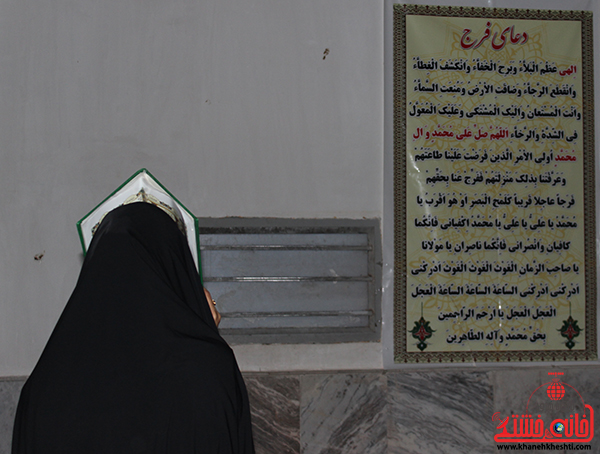 دعای فرج
الهی عَظُمَ الْبَلاَّءُ وَبَرِحَ الْخَفاَّءُ وَانْکَشَفَ الْغِطاَّءُ
وَانْقَطَعَ الرَّجاَّءُ وَضاقَتِ الاْرْضُ وَمُنِعَتِ السَّماَّءُ
وَاَنْتَ الْمُسْتَعانُ وَاِلَیْکَ الْمُشْتَکی وَعَلَیْکَ الْمُعَوَّلُ
فِی الشِّدَّةِ وَالرَّخاَّءِ اَللّهُمَّ صَلِّ عَلی مُحَمَّدٍ وَ الِ
مُحَمَّدٍ اُولِی الاْمْرِ الَّذینَ فَرَضْتَ عَلَیْنا طاعَتَهُمْ
وَعَرَّفْتَنا بِذلِکَ مَنْزِلَتَهُمْ فَفَرِّجْ عَنا بِحَقِّهِمْ
فَرَجاً عاجِلا قَریباً کَلَمْحِ الْبَصَرِ اَوْ هُوَ اَقْرَبُ یا
مُحَمَّدُ یا عَلِیُّ یا عَلِیُّ یا مُحَمَّدُ اِکْفِیانی فَاِنَّکُما
کافِیانِ وَانْصُرانی فَاِنَّکُما ناصِرانِ یا مَوْلانا
یا صاحِبَ الزَّمانِ الْغَوْثَ الْغَوْثَ الْغَوْثَ اَدْرِکْنی
اَدْرِکْنی اَدْرِکْنی السّاعَةَ السّاعَةَ السّاعَةَ الْعَجَلَ
الْعَجَلَ الْعَجَلَ یا اَرْحَمَ الرّاحِمینَ
بِحَقِّ مُحَمَّدٍ وَآلِهِ الطّاهِرینَ
خانه خشتی
www.khanehkheshti.com